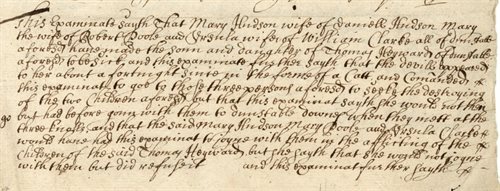 This Examinate sayth That Mary Hudson wife of Daniell Hudson Mary
the wife of Robert Poole and Ursula wife of William Clarke all of Dunstable
aforesd have made the sonn and daughter of Thomas Heyward of Dunstable
aforesd to be sick, and this examinate further sayth that the devill appeared
to her about a fortnight since in the forme of a Catt and Comanded
this examinate to goe to those three persons aforesd to seeke the destroying
of the two Children aforesd but that this examinat sayth she would not then
go but had before gone with them to dunstable downes when they mett at the
three knolls, and that the said Mary Hudson Mary Poole and Ursula Clarke
would have had this examinat to joyne with them in the afflicting of the
Children of the said Thomas Heyward, but she sayth that she would not joyne
with them but did refuse it and this examinat further sayth